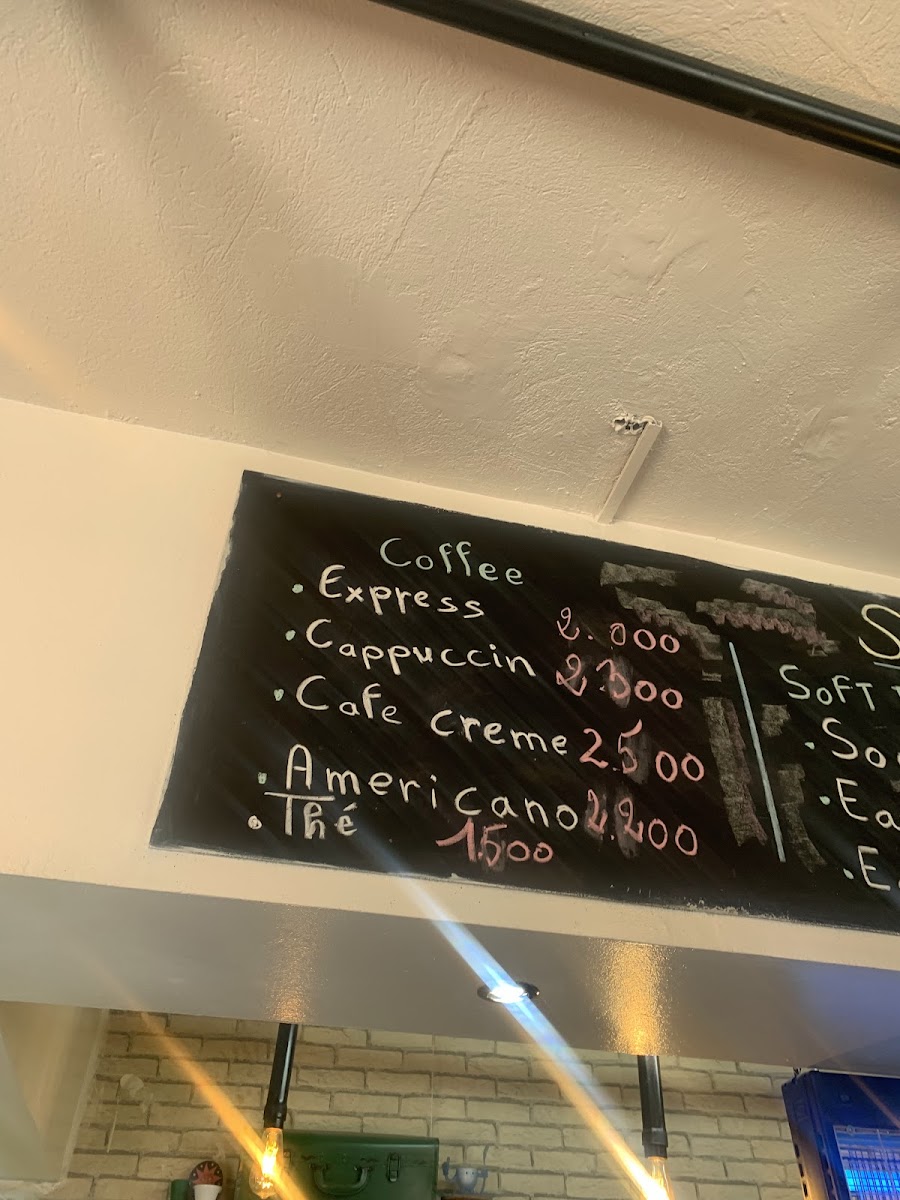 Coffee
• Express 2.000
• Cappuccin 2300
• Cafe creme 2500
• Americano 2.200
• Thé 1500
SOFT